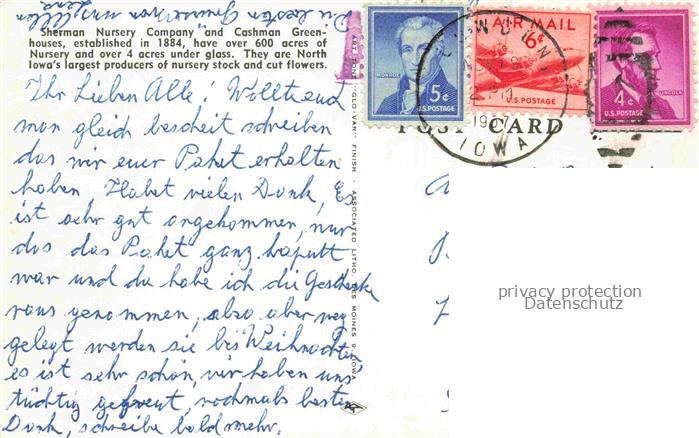 Sherman Nursery Company and Cashman Green-
houses, established in 1884, have over 600 acres of
Nursery and over 4 acres under glass. They are North
Iowa's largest producers of nursery stock and cut flowers.
Ihr Lieben Alle. Wollte eud
man gleich bescheit schreiben
das wir euer Paket erhalten
haben, Habet vielen Dank, Es
ist sehr gut angekommen, nur
das das Paket ganz kaputt
war und da habe ich die Geschenke
raus genommen, also aber weg
gelegt werden sie bis Weihnachten
es ist sehr schön, wir haben uns
tüchtig gefreut, nochmals besten
Dank, schreibe bald mehr.
ASSOCIATED LITHO. DES MOINES 9, IOWA
POST CARD
MONROE
5¢
U.S. POSTAGE
AIR MAIL
6¢
U.S. POSTAGE
LINCOLN
4¢
U.S. POSTAGE
IOWA
privacy protection
Datenschutz